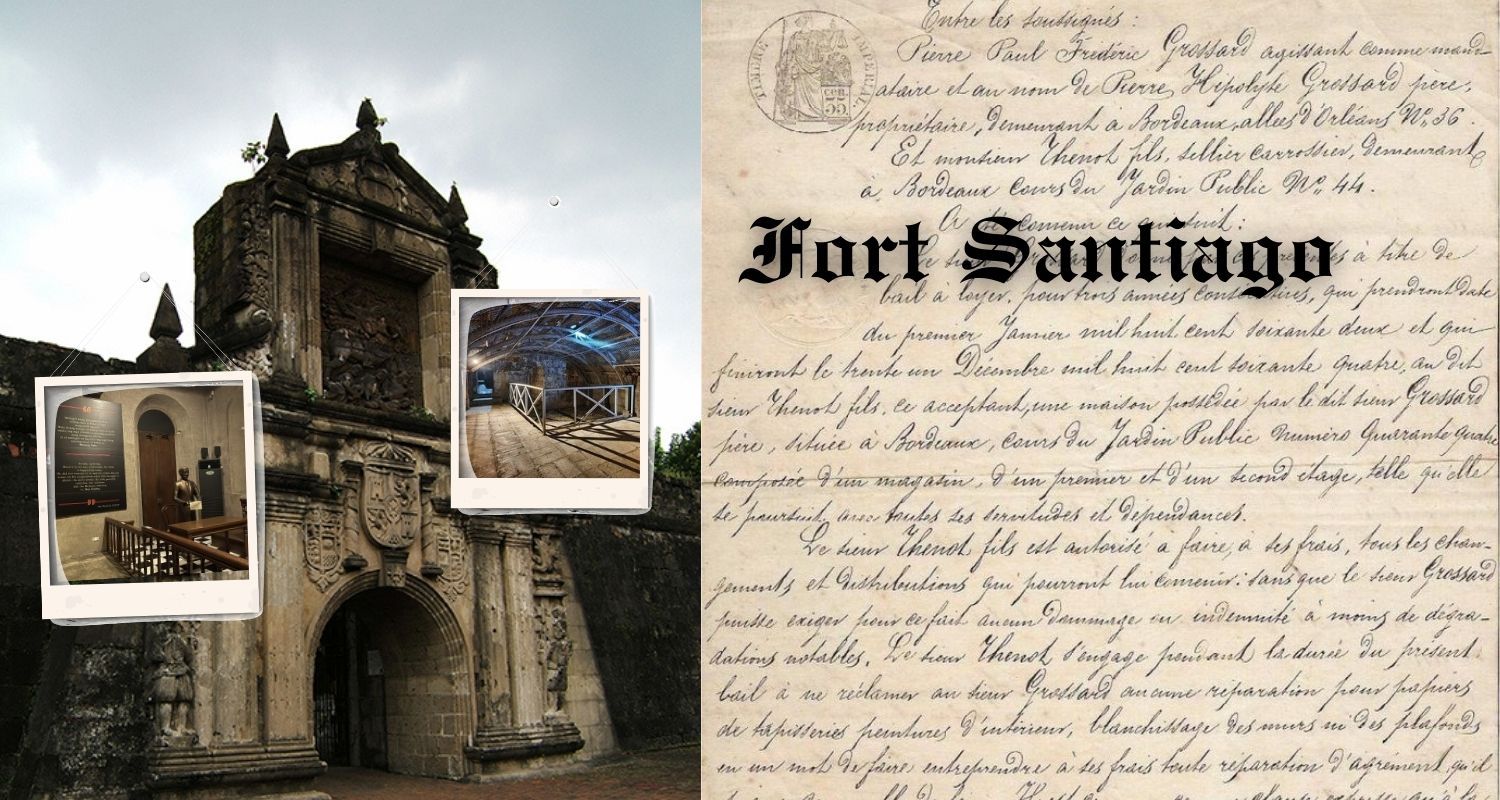 Fort Santiago
TIMBRE IMPERIAL
55 cen
Entre les soussignés :
Pierre Paul Frédéric Grossard agissant comme mand-
ataire et au nom de Pierre Hipolyte Grossard père,
propriétaire, demeurant à Bordeaux, allées d'Orléans N° 36.
Et monsieur Thenot fils, sellier carrossier, demeurant
à Bordeaux cours du Jardin Public N° 44.
A été convenu ce qui suit :
Le sieur Grossard donne par ces présentes à titre de
bail à loyer, pour trois années consécutives, qui prendront date
du premier Janvier mil huit cent soixante deux et qui
finiront le trente un Décembre mil huit cent soixante quatre, au dit
sieur Thenot fils, ce acceptant, une maison possédée par le dit sieur Grossard
père, située à Bordeaux, cours du Jardin Public numéro Quarante quatre
composée d'un magasin, d'un premier et d'un second étage, telle qu'elle
se poursuit, avec toutes ses servitudes et dépendances.
Le sieur Thenot fils est autorisé à faire, à ses frais, tous les chan-
gements et distributions qui pourront lui convenir : sans que le sieur Grossard
puisse exiger pour ce fait aucun dommage ou indemnité à moins de dégra-
dations notables. Le sieur Thenot s'engage pendant la durée du présent
bail à ne réclamer au sieur Grossard aucune réparation pour papiers
de tapisseries peintures d'intérieur, blanchissage des murs ni des plafonds
en un mot de faire entreprendre à ses frais toute réparation d'agrément, qu'il